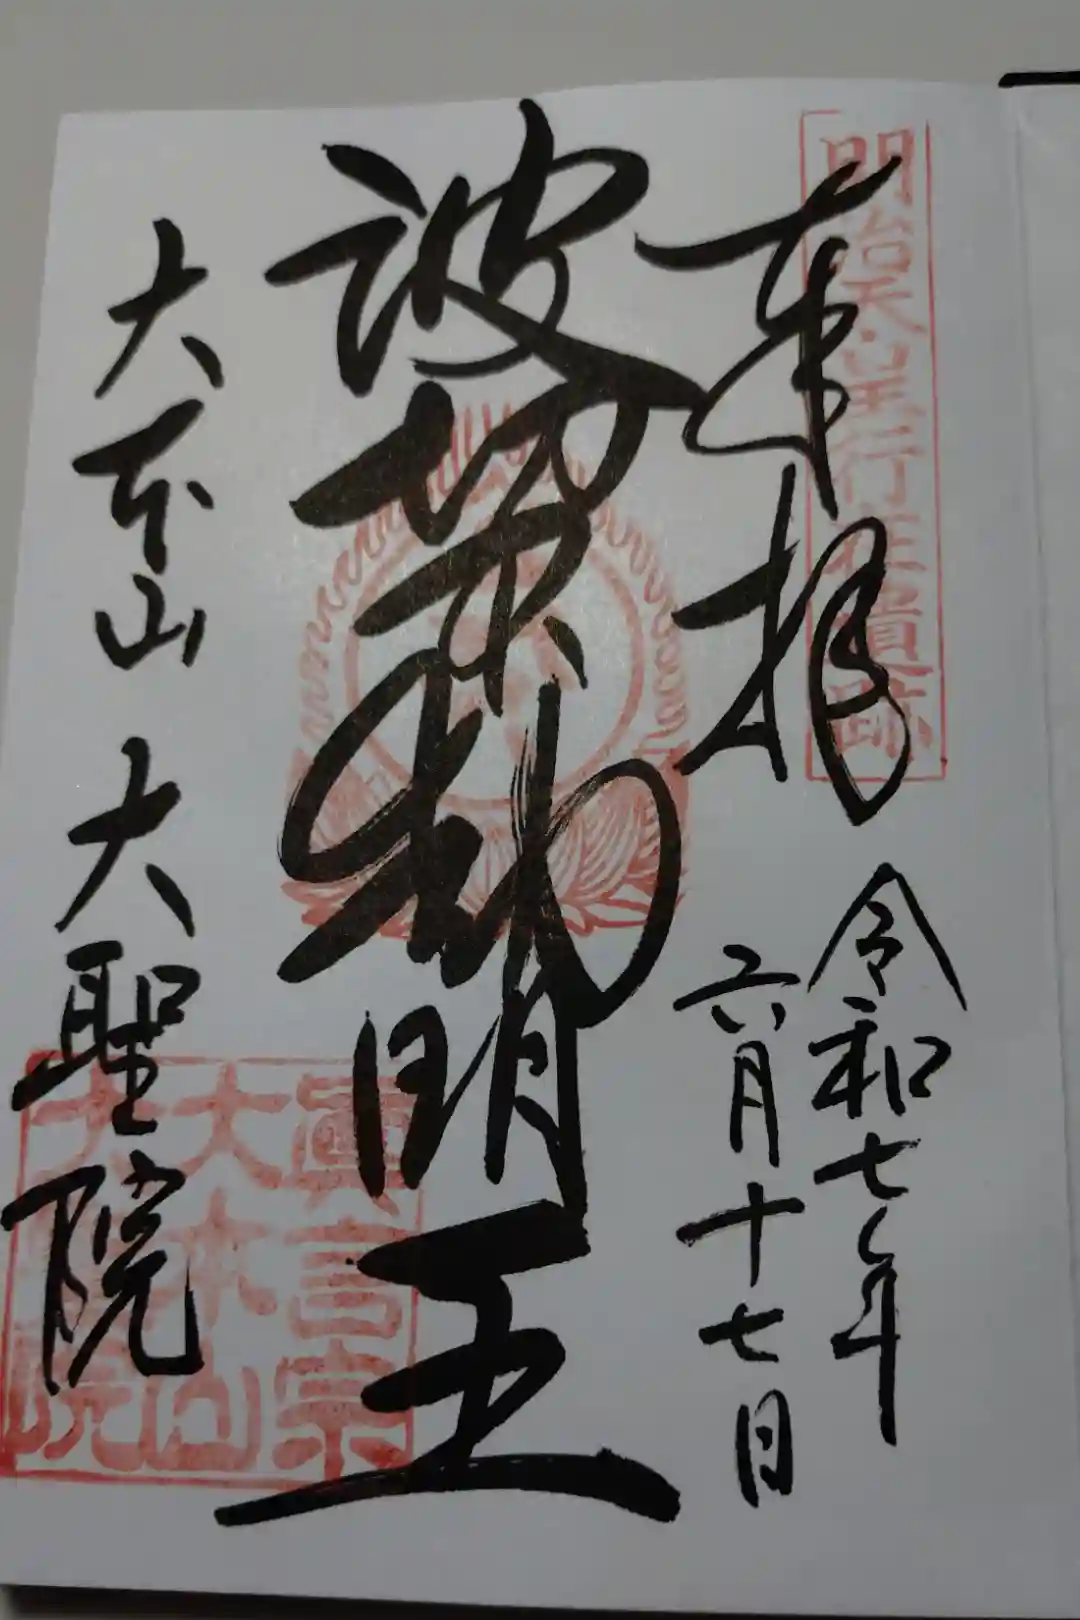 明治天皇行在遺跡
奉拝
令和七年
六月十七日
波切不動明王
大本山 大聖院
眞言宗
大本山